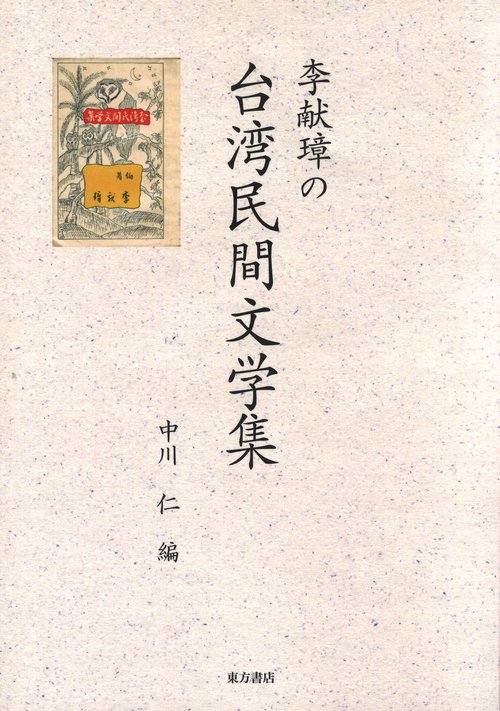 李献璋の
台湾民間文学集
中川 仁 編
台湾民間文学集
編者
李献璋
東方書店